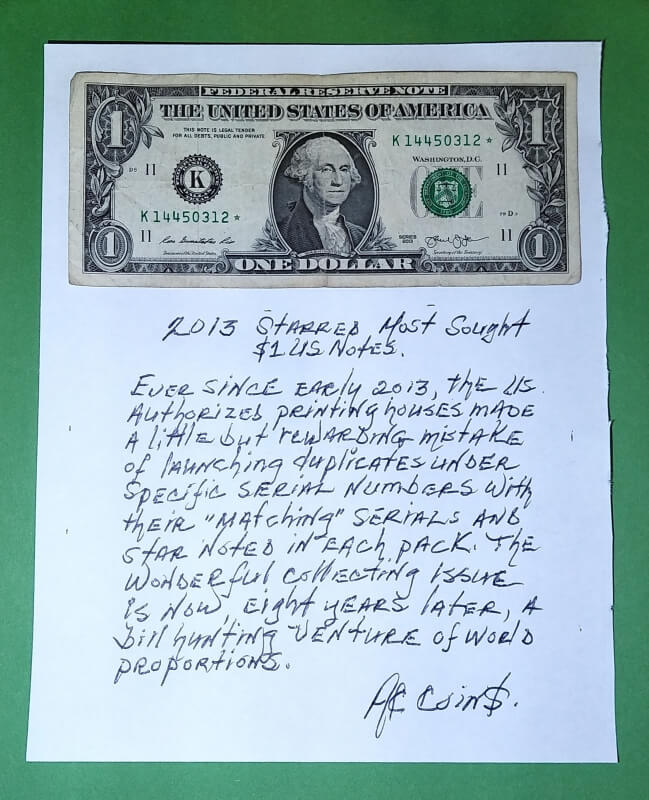 FEDERAL RESERVE NOTE
THE UNITED STATES OF AMERICA
THIS NOTE IS LEGAL TENDER
FOR ALL DEBTS, PUBLIC AND PRIVATE
K 14450312 *
WASHINGTON, D.C.
1
1
D5
11
11
K
ONE
K 14450312 *
11
11
SERIES
2013
Treasurer of the United States
Secretary of the Treasury
1
1
ONE DOLLAR
2013 STARRED Most Sought
$1 US Notes.
EVER SINCE EARLY 2013, the US.
Authorized printing houses made
A little but rewarding mistake
of launching duplicates under
specific SERIAL NUMBERS with
their "MAtching" SERIALS AND
STAR NOTED IN EACH PACK. The
WONDERFUL collecting ISSUE
is now, eight years later, A
bill hunting VENTURE of World
proportions.
AC Coin$.